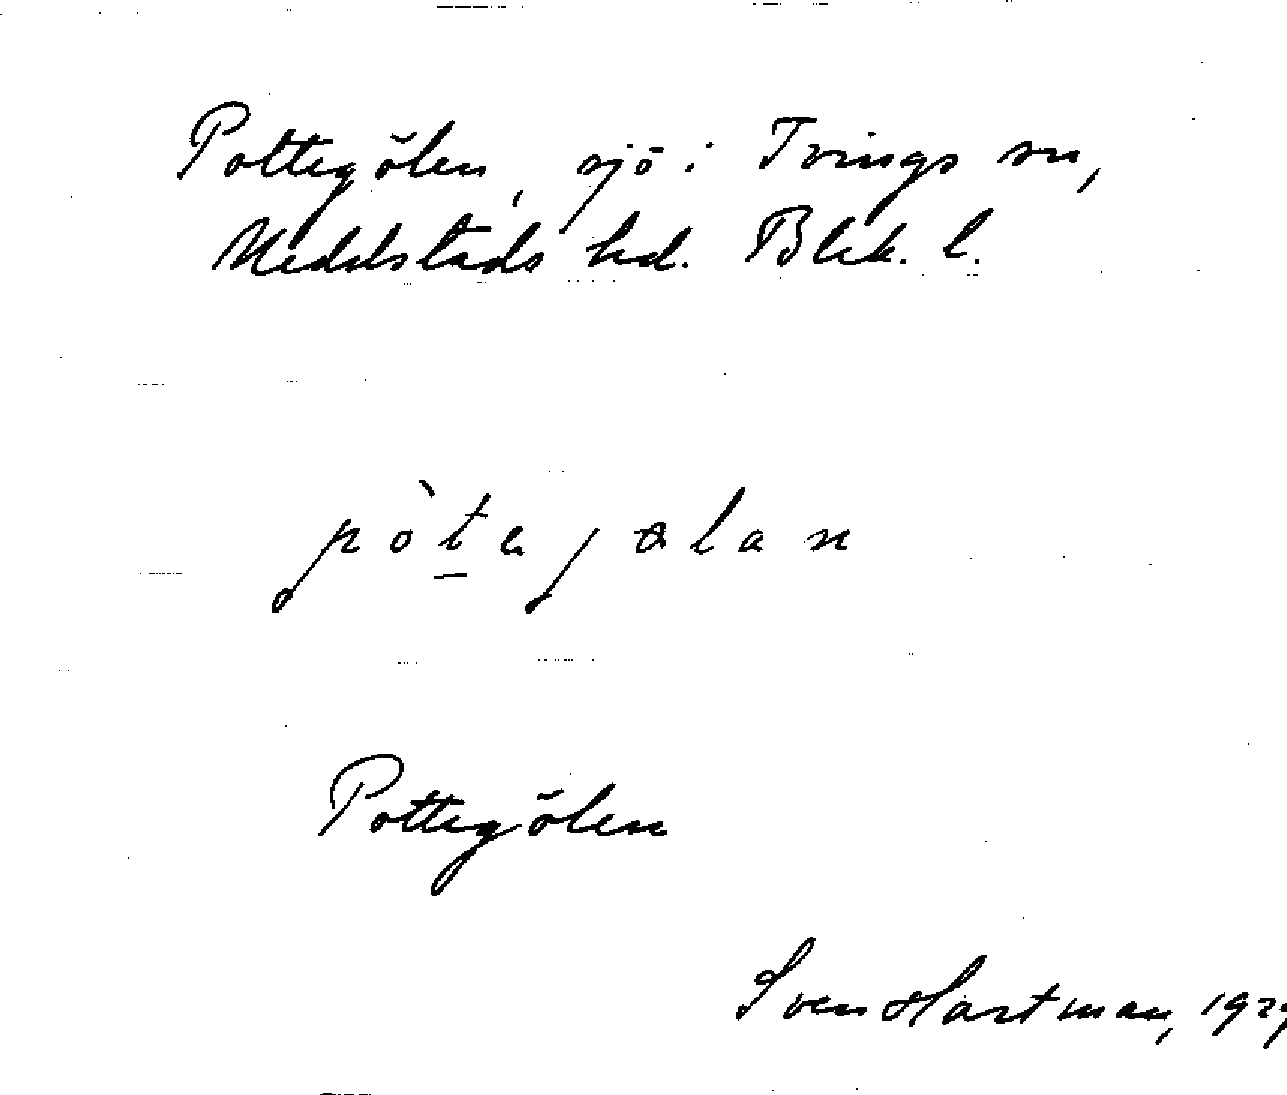 Pottegölen, sjö i Tvings sn,
Medelstads hd. Blek. l.
Pottegölen
Sven Hartman, 1929